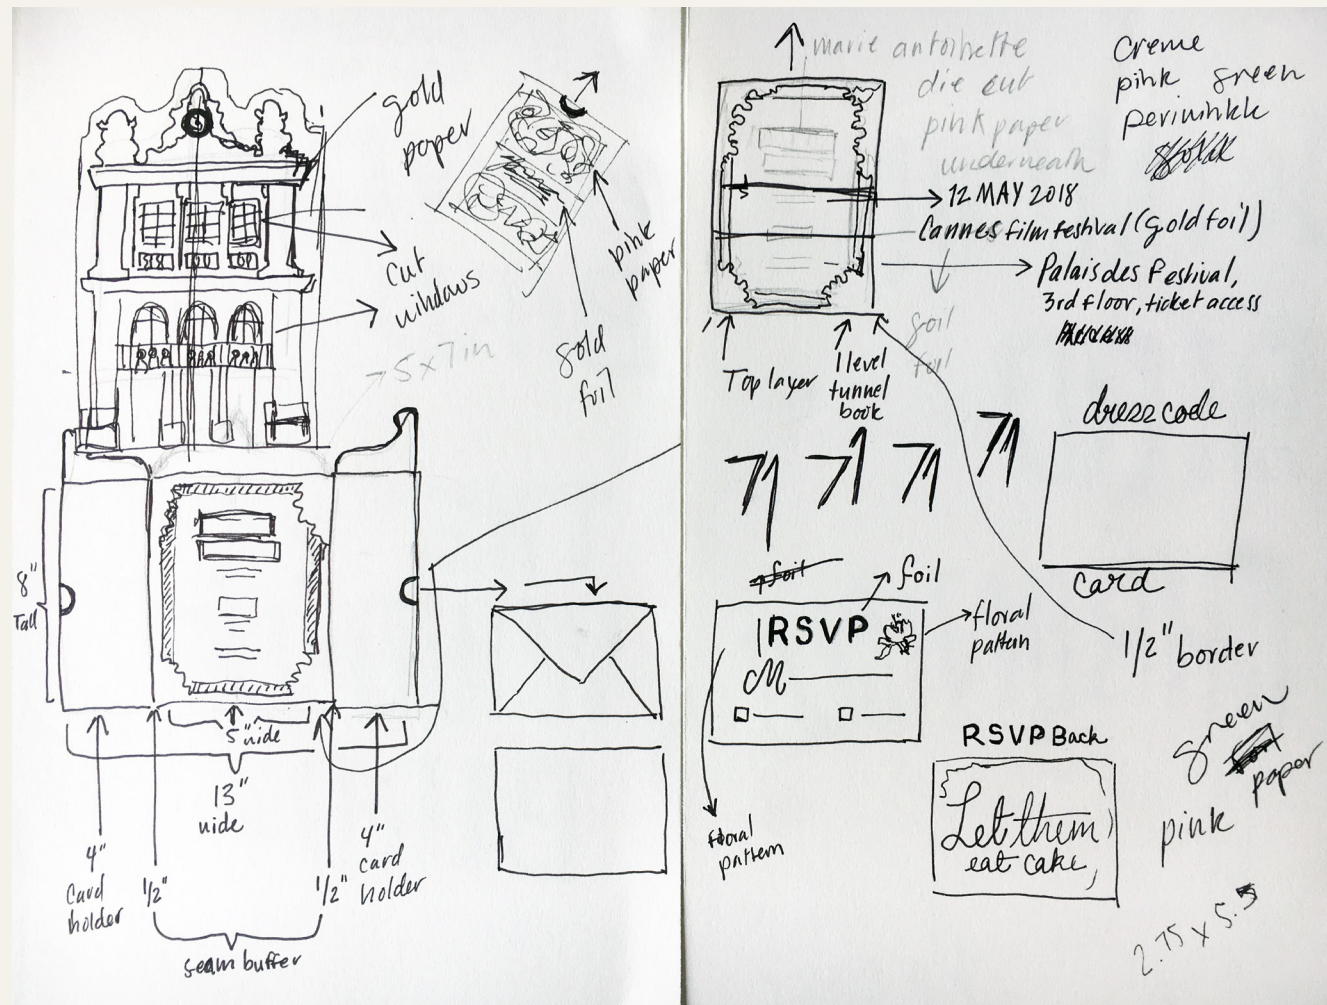 gold
paper
pink
paper
gold
foil
cut
windows
5x7in
8"
Tall
5" wide
13"
wide
4"
card
holder
1/2"
1/2"
4"
card
holder
seam buffer
marie antoinette
die cut
pink paper
underneath
Creme
pink green
periwinkle
12 MAY 2018
Cannes film festival (gold foil)
Palais des Festival,
3rd floor, ticket access
foil
Top layer
1 level
tunnel
book
dress code
card
foil
foil
RSVP
M
floral
pattern
floral
pattern
1/2" border
RSVP Back
Let them
eat cake
green
paper
pink
2.75 x 5.5